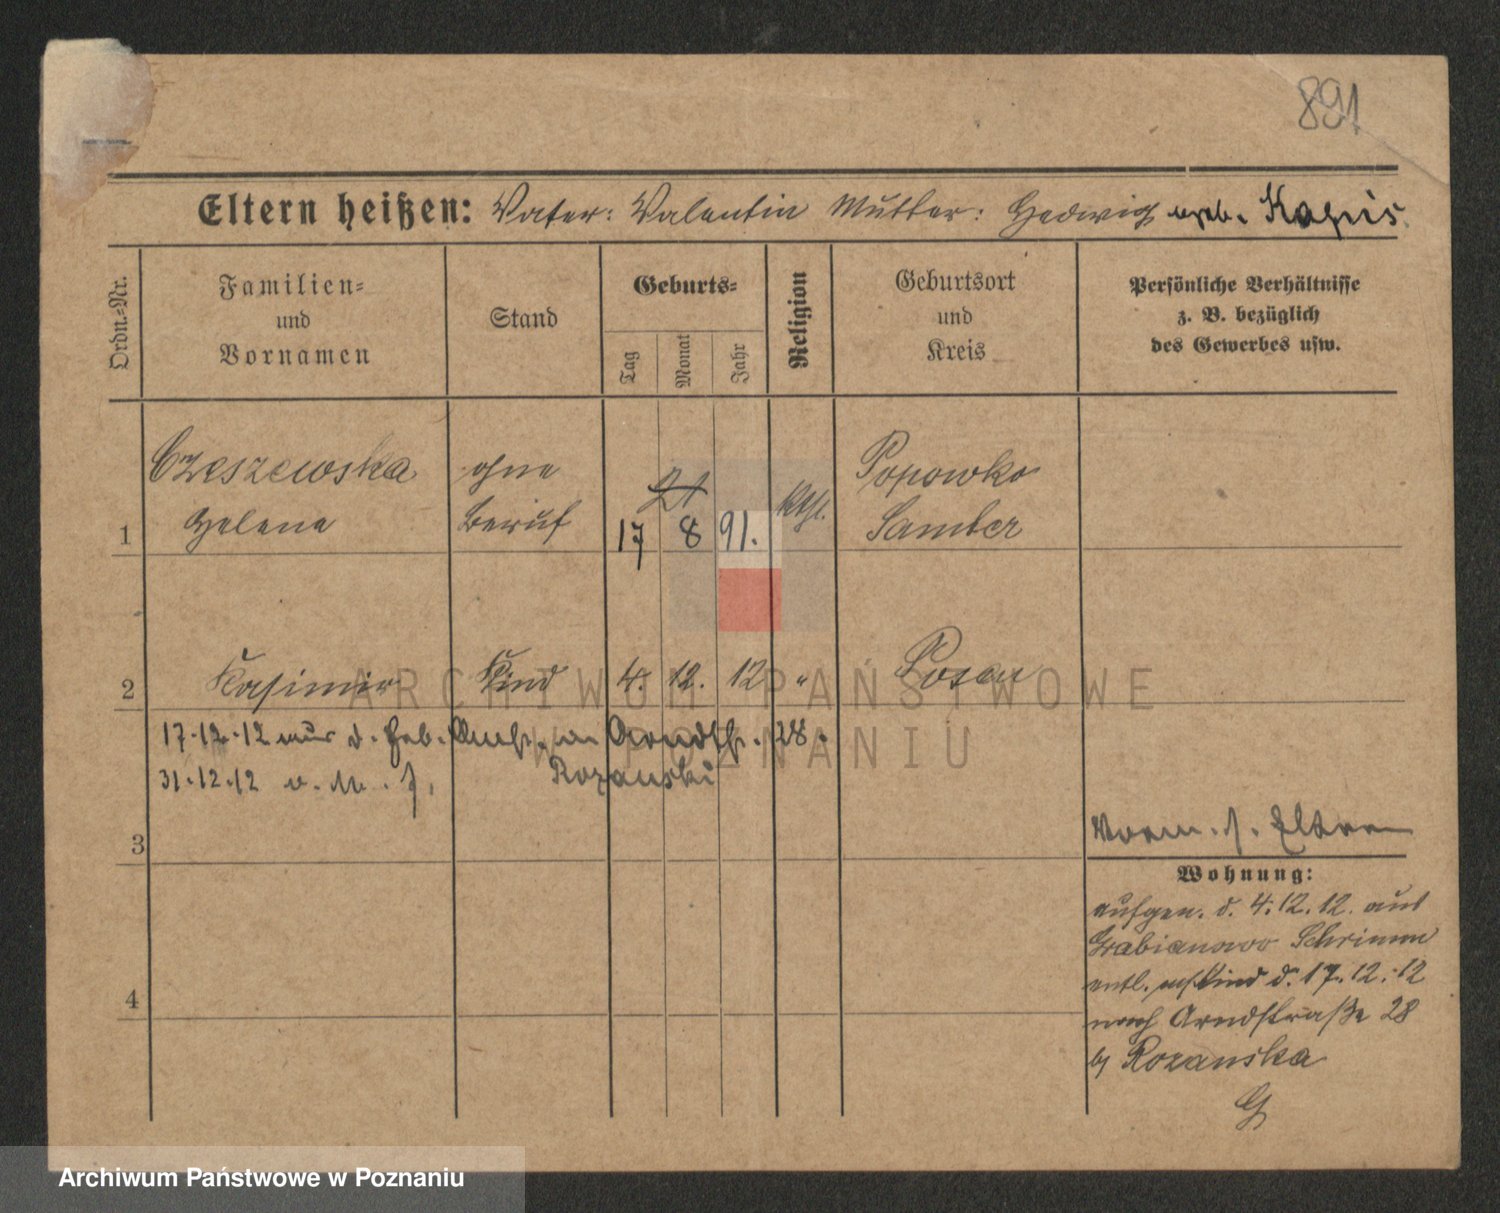 891
Eltern heißen: Vater: Valentin Mutter: Hedwig geb. Kapuis
Ordn.=Nr.
Familien=
und
Vornamen
Stand
Geburts=
Tag
Monat
Jahr
Religion
Geburtsort
und
Kreis
Persönliche Verhältnisse
z. B. bezüglich
des Gewerbes usw.
1
Czeszewska
Helena
ohne
Beruf
21
17 8 91.
kth.
Popowko
Samter
2
Kasimir
Kind
4. 12. 12
"
Posen
17.12.12 aus d. Heb. Anst. Arndtstr. 28.
31.12.12 v. M. Rozanski
3
4
Vorm. Eltern
Wohnung:
aufgen. d. 4.12.12. aus
Grabianowo Schrimm
entl. m/Kind d. 17.12.12
nach Arndstraße 28
b/ Rozanska
G
ARCHIWUM PAŃSTWOWE
W POZNANIU
Archiwum Państwowe w Poznaniu